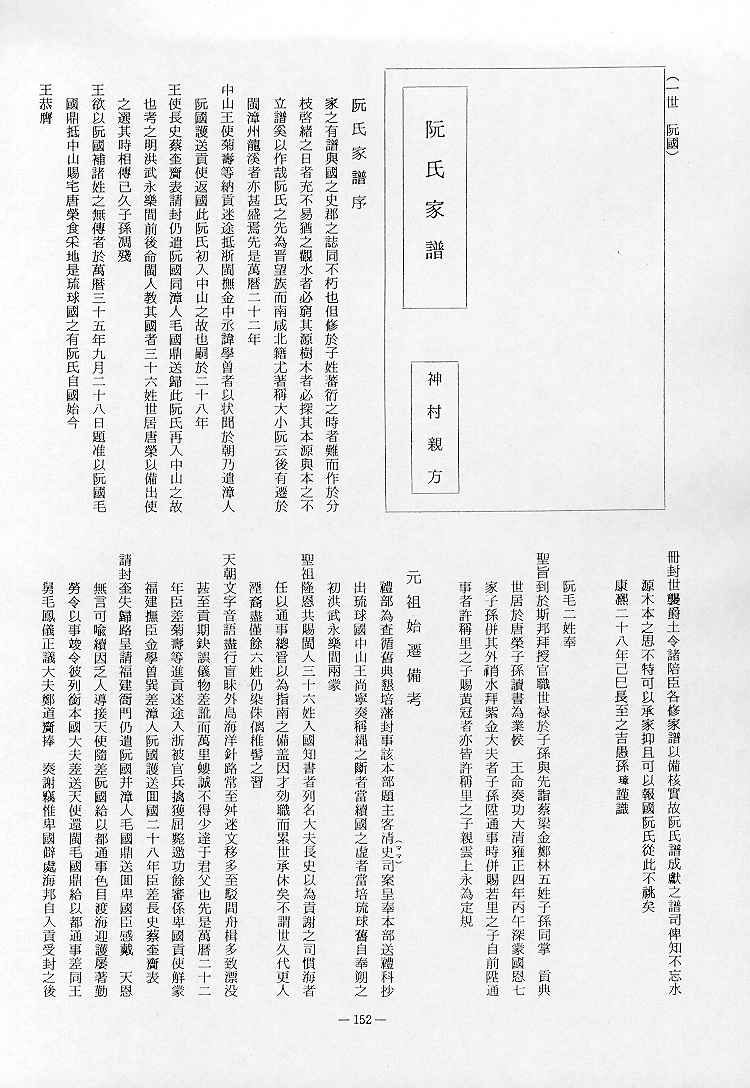 (一世 阮國)
阮氏家譜
神村親方
阮氏家譜序
家之有譜與國之史郡之誌同不朽也但修於子姓蕃衍之時者難而作於分
枝啓緒之日者充不易猶之觀水者必窮其源樹木者必探其本源與本之不
立譜奚以作哉阮氏之先為晋望族而南咸北籍尤著稱大小阮云後有遷於
閩漳州龍溪者亦甚盛焉先是萬曆二十二年
中山王使菊壽等納貢迷途抵浙閩撫金中丞諱學曾者以状聞於朝乃遣漳人
阮國護送貢使返國此阮氏初入中山之故也嗣於二十八年
王使長史蔡奎齎表請封仍遣阮國同漳人毛國鼎送歸此阮氏再入中山之故
也考之明洪武永樂間前後命閩人教其國者三十六姓世居唐榮以備出使
之選其時相傳已久子孫凋殘
王欲以阮國補諸姓之無傳者於萬曆三十五年九月二十八日題准以阮國毛
國鼎抵中山賜宅唐榮食采地是琉球國之有阮氏自國始今
王恭膺
冊封世襲爵土令諸陪臣各修家譜以備核實故阮氏譜成獻之譜司俾知不忘水
源木本之思不特可以承家抑且可以報國阮氏從此不祧矣
康熙二十八年己巳長至之吉愚孫璋謹識
阮毛二姓奉
聖旨到於斯邦拜授官職世禄於子孫與先詣蔡梁金鄭林五姓子孫同掌 貢典
世居於唐榮子孫讀書為業候 王命奏功大清雍正四年丙午深蒙國恩七
家子孫併其外稍水拜紫金大夫者子孫陞通事時併賜若里之子自前陞通
事者許稱里之子賜黃冠者亦皆許稱里之子親雲上永為定規
元祖始遷備考
禮部為查循舊典懇培藩封事該本部題主客凊史司案呈奉本部送禮科抄
(ママ)
出琉球國中山王尚寧奏稱䋲之斷者當續國之虚者當培琉球舊自奉朔之
初洪武永樂間兩蒙
聖祖隆恩共賜閩人三十六姓入國知書者列名大夫長史以為貢謝之司慣海者
任以通事總管以為指南之備盖因才効職而累世承休矣不謂世久代更人
湮裔盡僅餘六姓仍染侏𠌯椎髻之習
天朝文字音語盡行盲昧外島海洋針路常至舛迷文移多至駁問舟楫多致漂没
甚至貢期鈌誤儀物差訛而萬里螻誠不得少達于君父也先是萬曆二十二
年臣差菊壽等進貢迷途入浙被官兵擒獲屈斃邀功餘審係卑國貢使觧蒙
福建撫臣金學曽巽差漳人阮國護送囬國二十八年臣差長史蔡奎齎表
請封奎失歸路呈請福建衙門仍遣阮國并漳人毛國鼎送囬卑國臣感戴 天恩
無言可喩續因乏人導接天使隨差阮國給以都通事色目渡海迎護屡著勤
勞令以事竣令彼列銜本國大夫差送天使還閩毛國鼎給以都通事差同王
舅毛鳳儀正議大夫鄭道齎捧 奏謝竊惟卑國僻處海邦自入貢受封之後
— 152 —